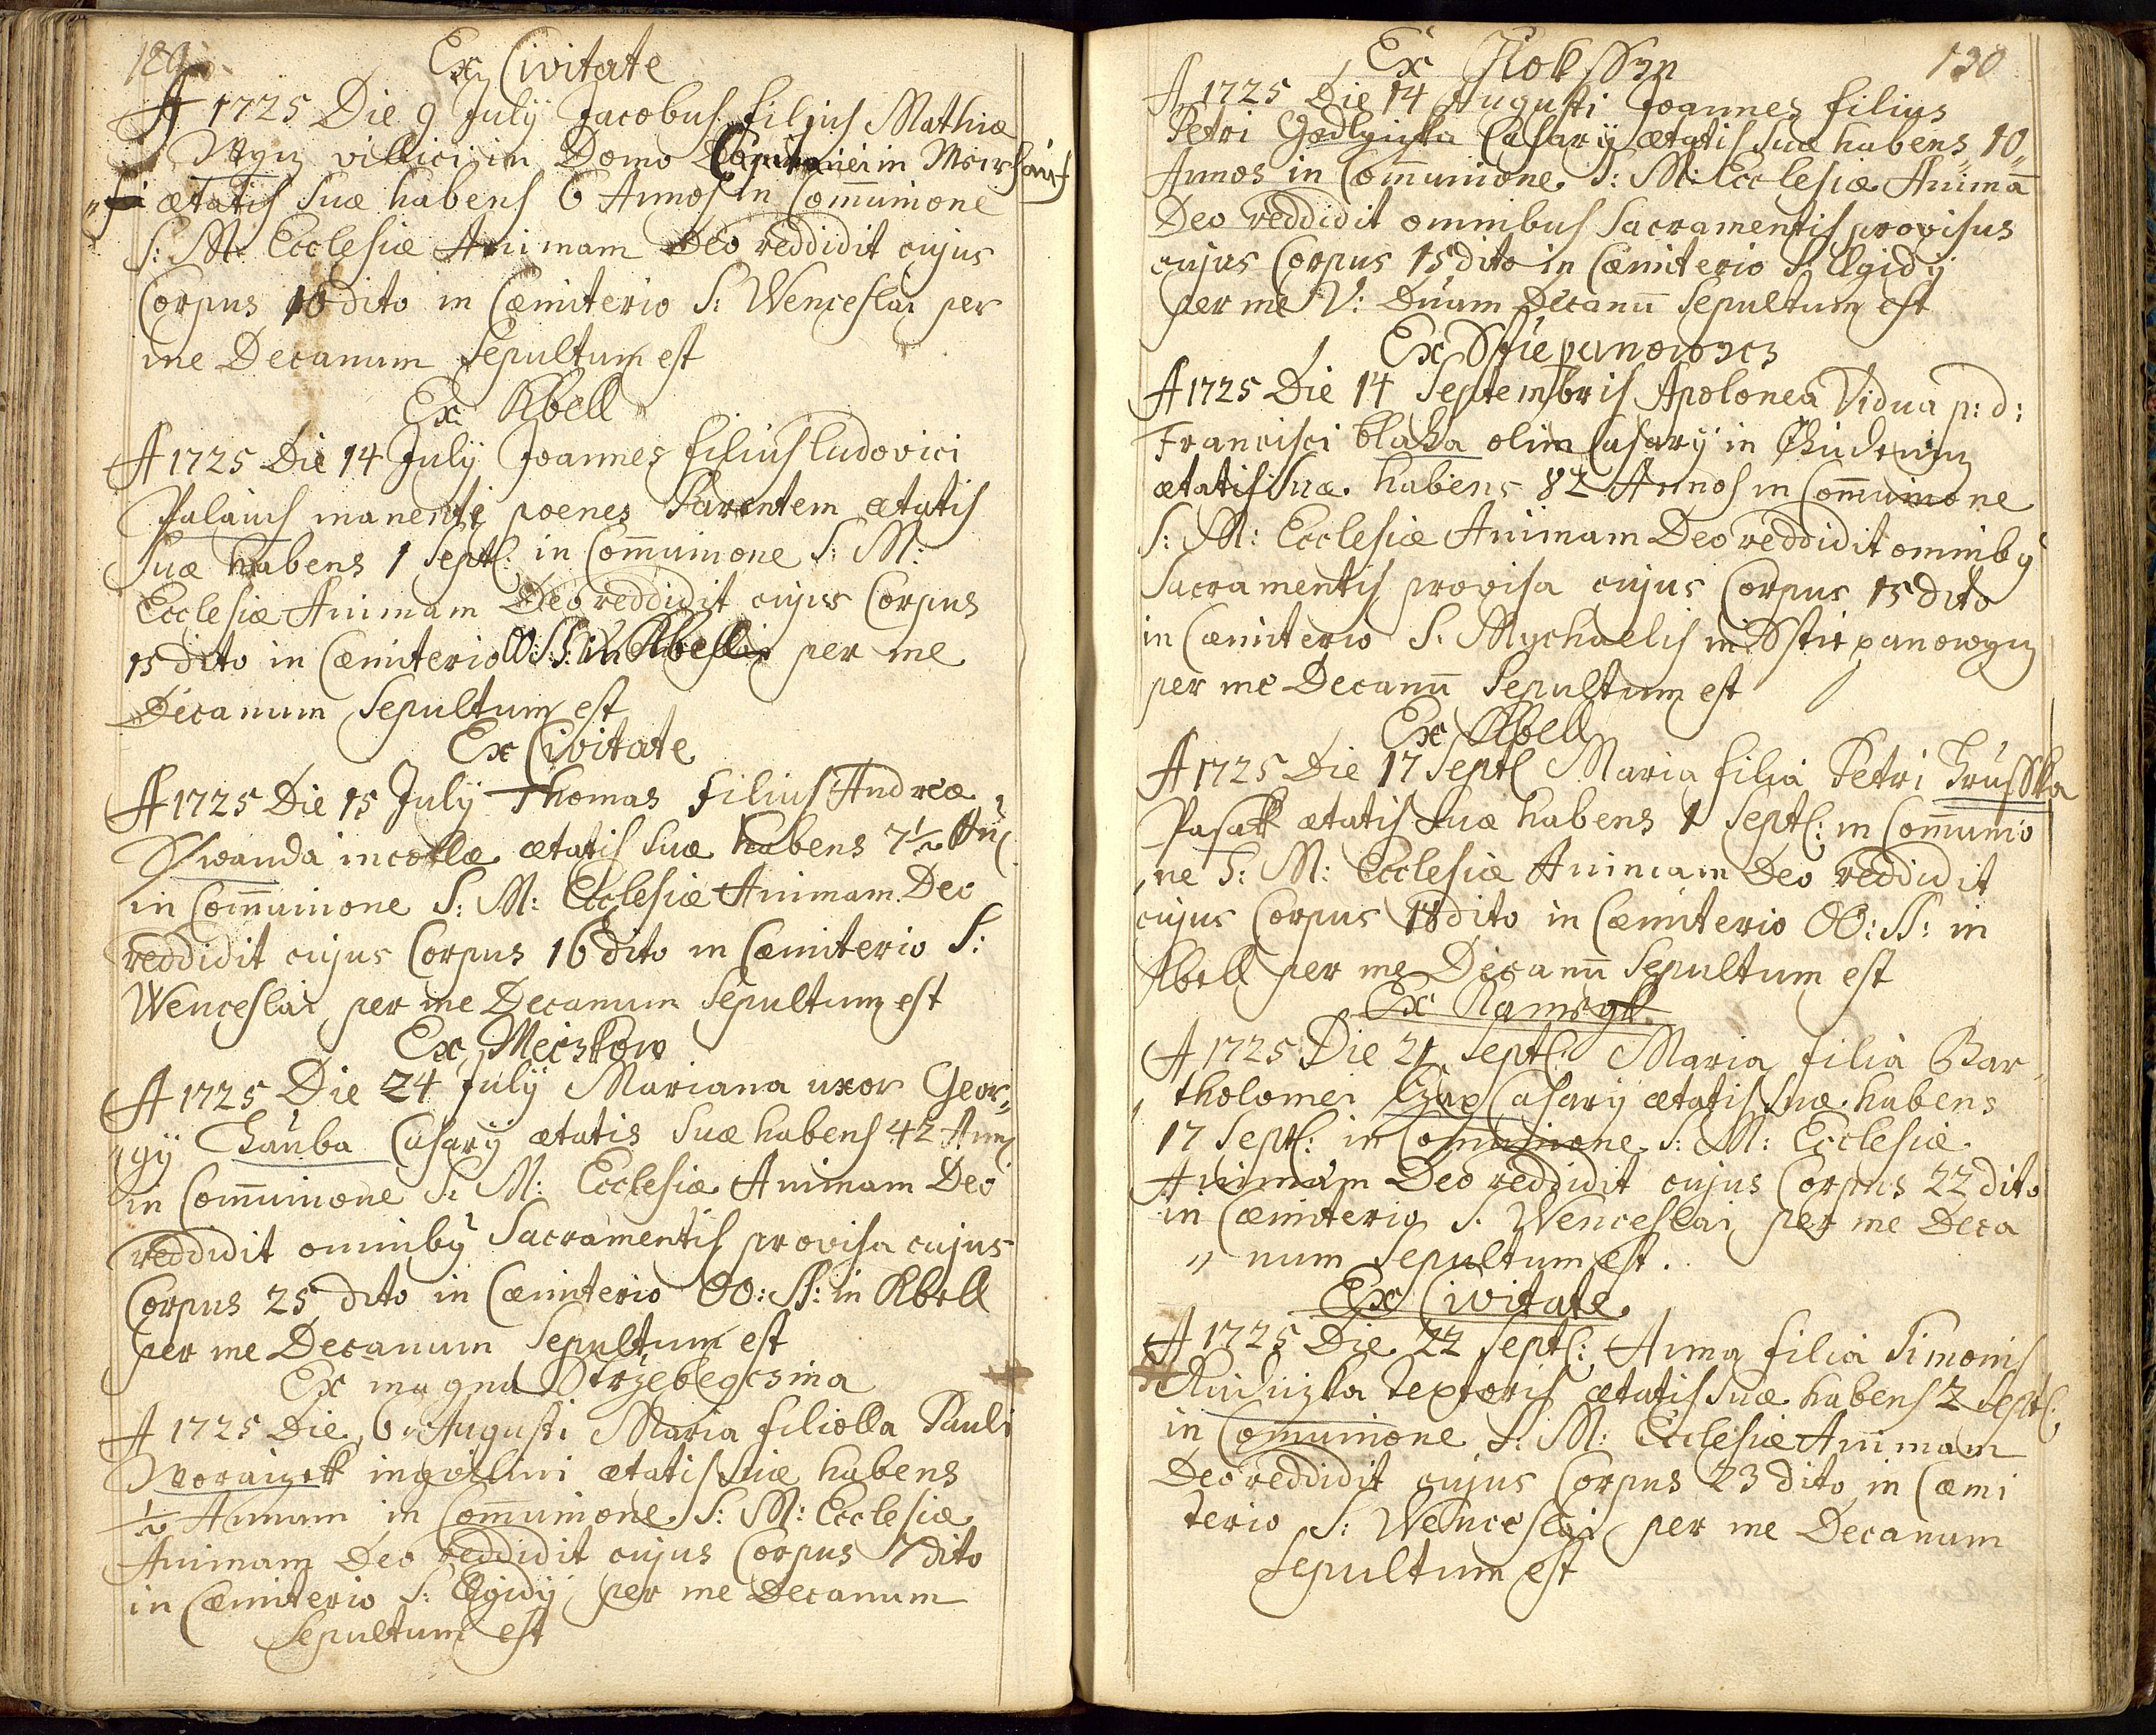 Ex Civitate
A 1725 Die 9 July Jacobus filius Mathiæ
villici in Domo
ætatis Suæ habens 6 Annos in Com̄unione
S: M: Ecclesiæ Animam Deo reddidit cujus
Corpus 10 dito in Cæmiterio S: Wenceslai per
me Decanum Sepultum est
Ex Kbell
A 1725 Die 14 July Joannes filius Ludovici
manenti poenes Parentem ætatis
Suæ habens 1 Septl: in Com̄unione S: M:
Ecclesiæ Animam Deo reddidit cujus Corpus
15 dito in Cæmiterio OO: SS: in per me
Decanum Sepultum est
Ex Civitate
A 1725 Die 15 July Thomas filius Andreæ
Swanda incollæ ætatis Suæ habens 7½
in Com̄unione S: M: Ecclesiæ Animam Deo
reddidit cujus Corpus 16 dito in Cæmiterio S:
Wenceslai per me Decanum Sepultum est
Ex Meczkow
A 1725 Die 24 July Mariana uxor Geor„
„gÿ Chauba Casarÿ ætatis Suæ habens 42
in Com̄unione S: M: Ecclesiæ Animam Deo
reddidit omnibꝰ Sacramentis provisa cujus
Corpus 25 dito in Cæmiterio OO: SS: in Kbell
per me Decanum Sepultum est
Ex magna
A 1725 Die 6 Augusti Maria filiolla Pauli
Woraczek inqvilini ætatis Suæ habens
½ Annum in Com̄unione S: M: Ecclesiæ
Animam Deo reddidit cujus Corpus 7 dito
in Cæmiterio S: Ægidÿ per me Decanum
Sepultum est
130
Ex
A 1725 Die 14 Augusti Joannes filius
Petri Casarÿ ætatis Suæ habens 10„
Annos in Com̄unione S: M: Ecclesiæ Animā
Deo reddidit omnibus Sacramentis provisus
cujus Corpus 15 dito in Cæmiterio S: Ægidÿ
per me Decanū Sepultum est
Ex
A 1725 Die 14 Septembris Apolonea Vidua p: d:
Francisci blaha olim Casarÿ in
ætatis Suæ habens 82 Annos in Com̄unione
S: M: Ecclesiæ Animam Deo reddidit omnibꝰ
Sacramentis provisa cujus Corpus 15 dito
in Cæmiterio S: Mychaelis in
per me Decanū Sepultum est
Ex Kbell
A 1725 Die 17 Septl Maria filia Petri Hrusska
Pasak ætatis Suæ habens 1 Septl: in Com̄unio
„ne S: M: Ecclesiæ Animam Deo reddidit
cujus Corpus 18 dito in Cæmiterio OO: SS: in
Kbell per me Decanū Sepultum est
Ex
A 1725 Die 21 Septl: Maria filia Bar„
tholomei Czap Casarÿ ætatis Suæ habens
17 Septl: in Com̄unione S: M: Ecclesiæ
Animam Deo reddidit cujus Corpus 22 dito
in Cæmiterio S: Wenceslai per me Deca
„num Sepultum est.
Ex Civitate
A 1725 Die 22 Septl: Anna filia Simonis
textoris ætatis Suæ habens 2 Septl:
in Comunione S: M: Ecclesiæ Animam
Deo reddidit cujus Corpus 23 dito in Cæmi
terio S: Wenceslai per me Decanum
Sepultum est